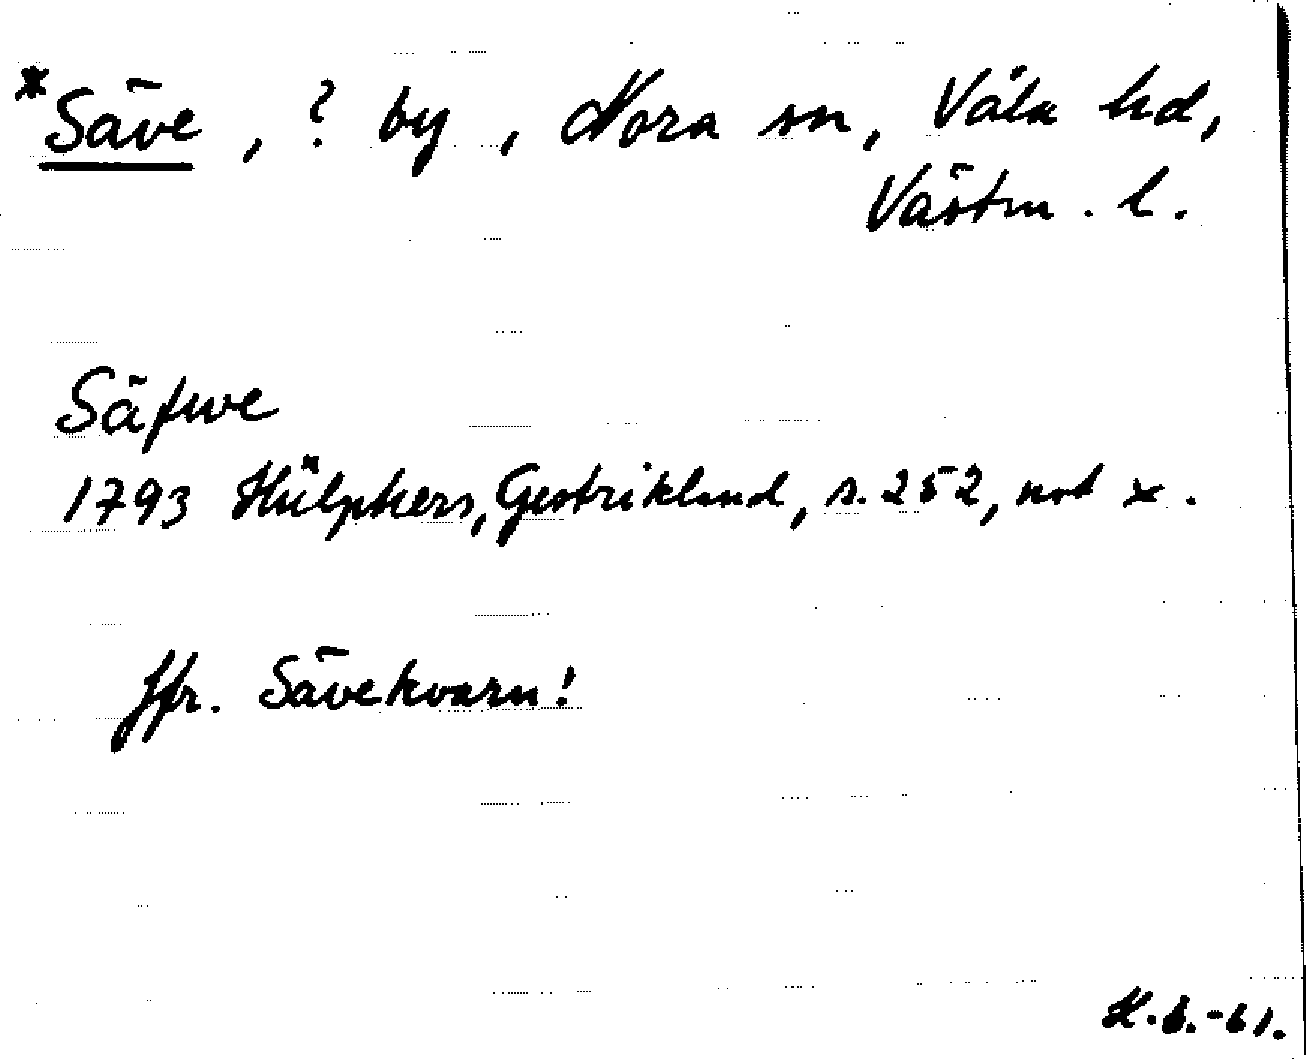 *Säve, ? by, Nora sn, Våla hd,
Västm. l.
Säfwe
1793 Hülphers, Gestrikland, s. 252, not x.
Jfr. Sävekvarn!
-61.